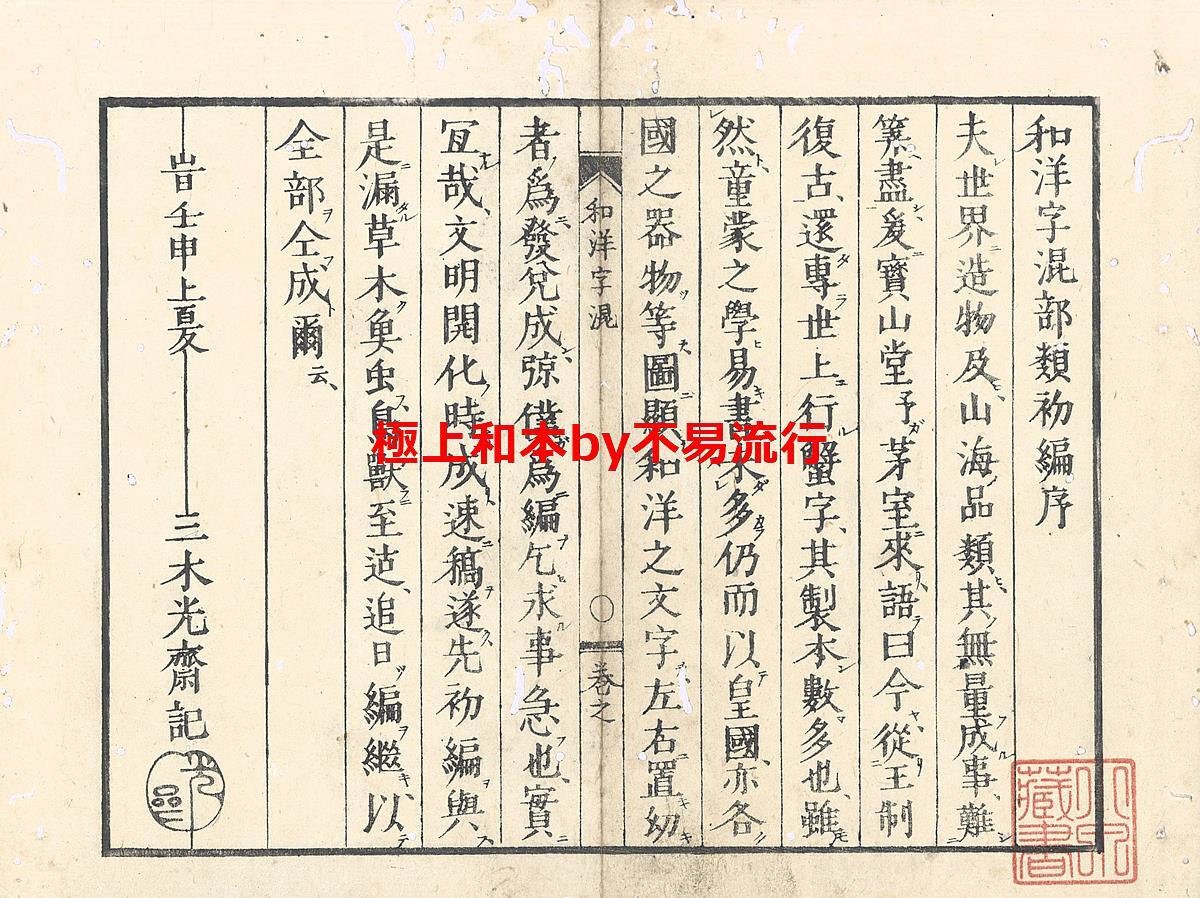 和洋字混部類初編序
夫世界造物及山海品類其無量成事難
筭盡爰寳山堂予茅室來語曰今從王制
復古還專世上行蟹字其製本數多也雖
然童蒙之學易書未多仍而以皇國亦各
國之器物等圖顯和洋之文字左右置幼
和洋字混
巻之
者爲發兌成弶僕爲編乞求事急也實
冝哉文明開化時成速稿遂先初編與
是漏草木魚虫鳥獸至迠追日編繼以
全部仝成爾云
旹壬申上夏
三木光齋記
極上和本by不易流行
藏書